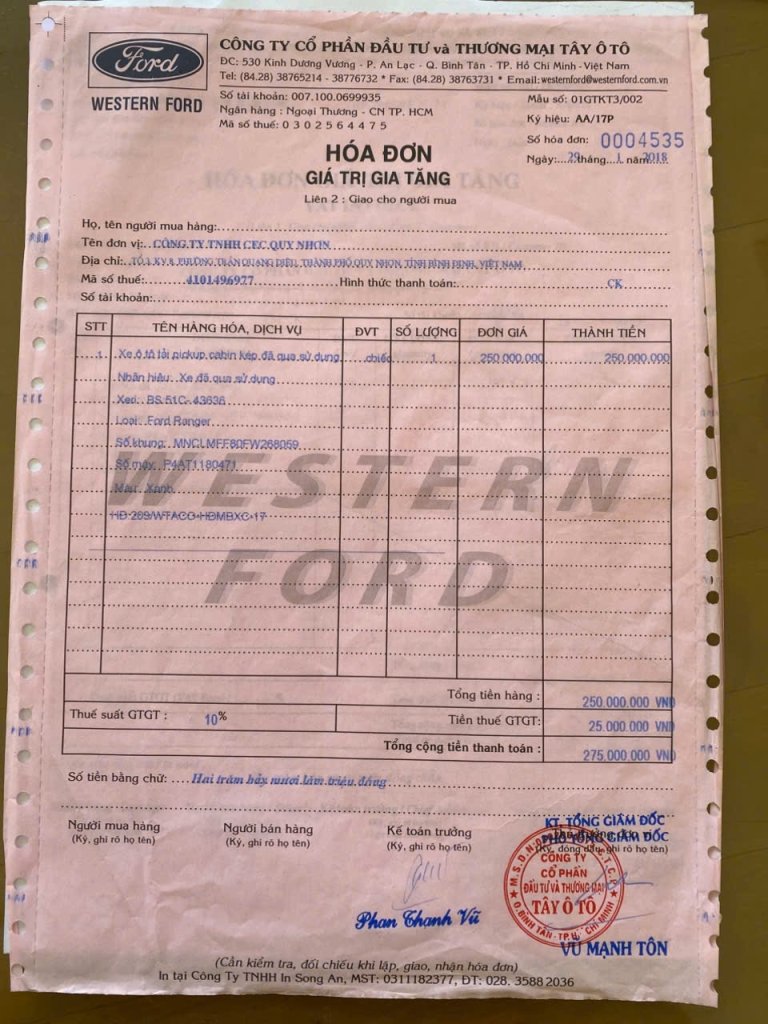 Ford
WESTERN FORD
CÔNG TY CỔ PHẦN ĐẦU TƯ và THƯƠNG MẠI TÂY Ô TÔ
ĐC: 530 Kinh Dương Vương - P. An Lạc - Q. Bình Tân - TP. Hồ Chí Minh - Việt Nam
Tel: (84.28) 38765214 - 38776732 * Fax: (84.28) 38763731 * Email: westernford@westernford.com.vn
Số tài khoản: 007.100.0699935
Ngân hàng : Ngoại Thương - CN TP. HCM
Mã số thuế: 0 3 0 2 5 6 4 4 7 5
Mẫu số: 01GTKT3/002
Ký hiệu: AA/17P
Số hóa đơn: 0004535
Ngày: 29 tháng 1 năm 2018
HÓA ĐƠN
GIÁ TRỊ GIA TĂNG
Liên 2 : Giao cho người mua
Họ, tên người mua hàng:
Tên đơn vị: CÔNG TY TNHH CEC QUY NHƠN
Địa chỉ: TỔ 1, KV 8, PHƯỜNG TRẦN QUANG DIỆU, THÀNH PHỐ QUY NHƠN, TỈNH BÌNH ĐỊNH, VIỆT NAM
Mã số thuế: 4101496977 Hình thức thanh toán: CK
Số tài khoản:
STT TÊN HÀNG HÓA, DỊCH VỤ ĐVT SỐ LƯỢNG ĐƠN GIÁ THÀNH TIỀN
1 Xe ô tô tải pickup cabin kép đã qua sử dụng chiếc 1 250.000.000 250.000.000
Nhãn hiệu: Xe đã qua sử dụng
Xeo: BS 51C- 43636
Loại: Ford Ranger
Số khung: MNCLMFF80FW268059
Số máy: P4AT1180471
Màu: Xanh
HĐ 209/WTACO-HĐMBXC-17
WESTERN
FORD
Tổng tiền hàng : 250.000.000 VND
Thuế suất GTGT : 10% Tiền thuế GTGT: 25.000.000 VND
Tổng cộng tiền thanh toán : 275.000.000 VND
Số tiền bằng chữ: Hai trăm bảy mươi lăm triệu đồng
Người mua hàng
(Ký, ghi rõ họ tên)
Người bán hàng
(Ký, ghi rõ họ tên)
Kế toán trưởng
(Ký, ghi rõ họ tên)
Phan Thanh Vũ
KT. TỔNG GIÁM ĐỐC
PHÓ TỔNG GIÁM ĐỐC
(Ký, đóng dấu, ghi rõ họ tên)
CÔNG TY
CỔ PHẦN
ĐẦU TƯ VÀ THƯƠNG MẠI
TÂY Ô TÔ
Q. BÌNH TÂN - TP. HỒ CHÍ MINH
VŨ MẠNH TÔN
(Cần kiểm tra, đối chiếu khi lập, giao, nhận hóa đơn)
In tại Công Ty TNHH In Song An, MST: 0311182377, ĐT: 028. 3588 2036